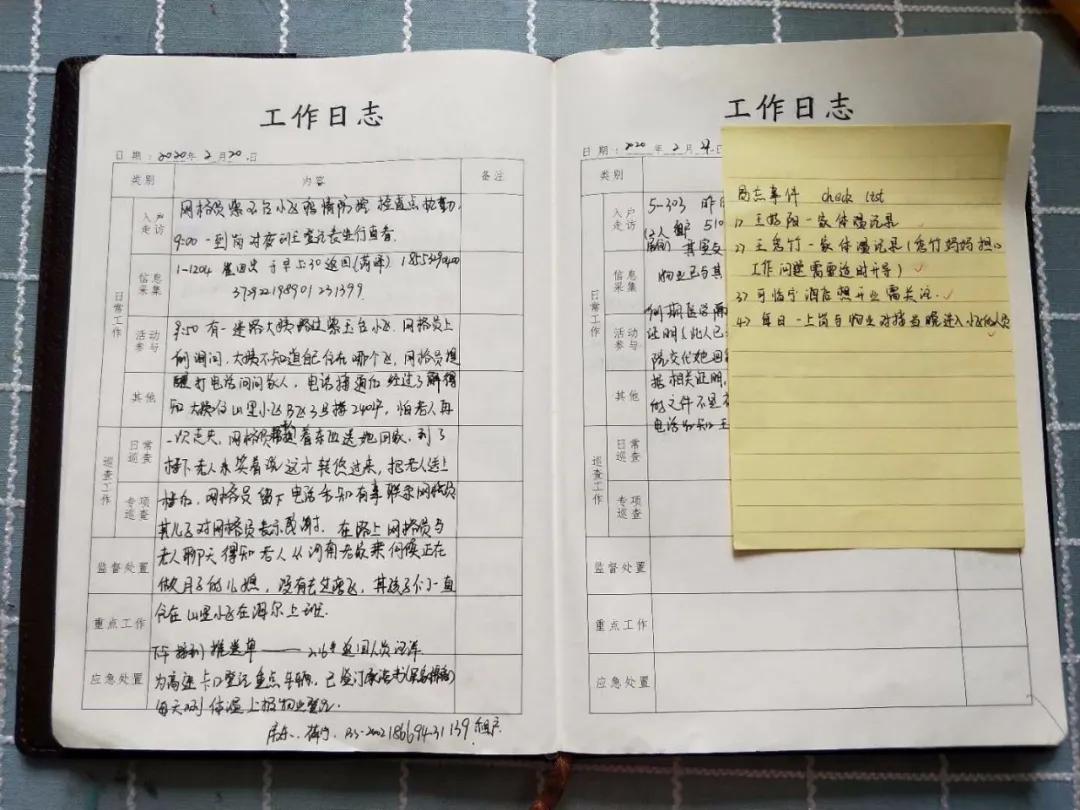 工作日志
日期:2020年2月20日
类别 内容 备注
日常工作
入户走访
网格员紫玉台小区疫情防控 检查点执勤,
9:00一到岗对夜班登记表进行查看.
信息采集
1-1204 于早5:30返回(菏泽)
活动参与
有一迷路大姨路过紫玉台小区,网格员上
前询问,大姨不知道自己住在哪个区,网格员提
其他
醒打电话问问家人,电话接通后 经过了解得
知大姨住山里小区B区3号楼2401户,怕老人再
巡查工作
日常巡查
一次走失,网格员帮着东西送她回家,到了
楼下老人来笑着说这才转悠过来,把老人送上
专项巡查
楼后,网格员留下电话告知有事联系网格员
其儿子对网格员表示感谢.在路上网格员与
监督处置
老人聊天得知老人从河南老家来伺候正在
做月子的儿媳,没有去过疫区,其孩子们一直
重点工作
住在山里小区在海尔上班.
下午接到推送单——2.16号返回人员
应急处置
为高速卡口登记重点车辆,已签订承诺书
每天测体温上报物业登记.
房东 租户
工作日志
日期:2020年2月21日
类别
日常工作
入户走访
5-303 昨
510
其室友
信息采集
物业已与其
活动参与
证明此人已
院交代她回
其他
据相关证明,
的文件不是
电话告知
巡查工作
日常巡查
专项巡查
监督处置
重点工作
应急处置
事件 check list
1) 王 阳一家体温记录
2) 王 竹一家体温记录( 竹妈妈担心
工作问题需要适时开导)
3) 可临宁酒店想开业需关注.
4) 每日一上岗与物业对接当晚进入小区的人员